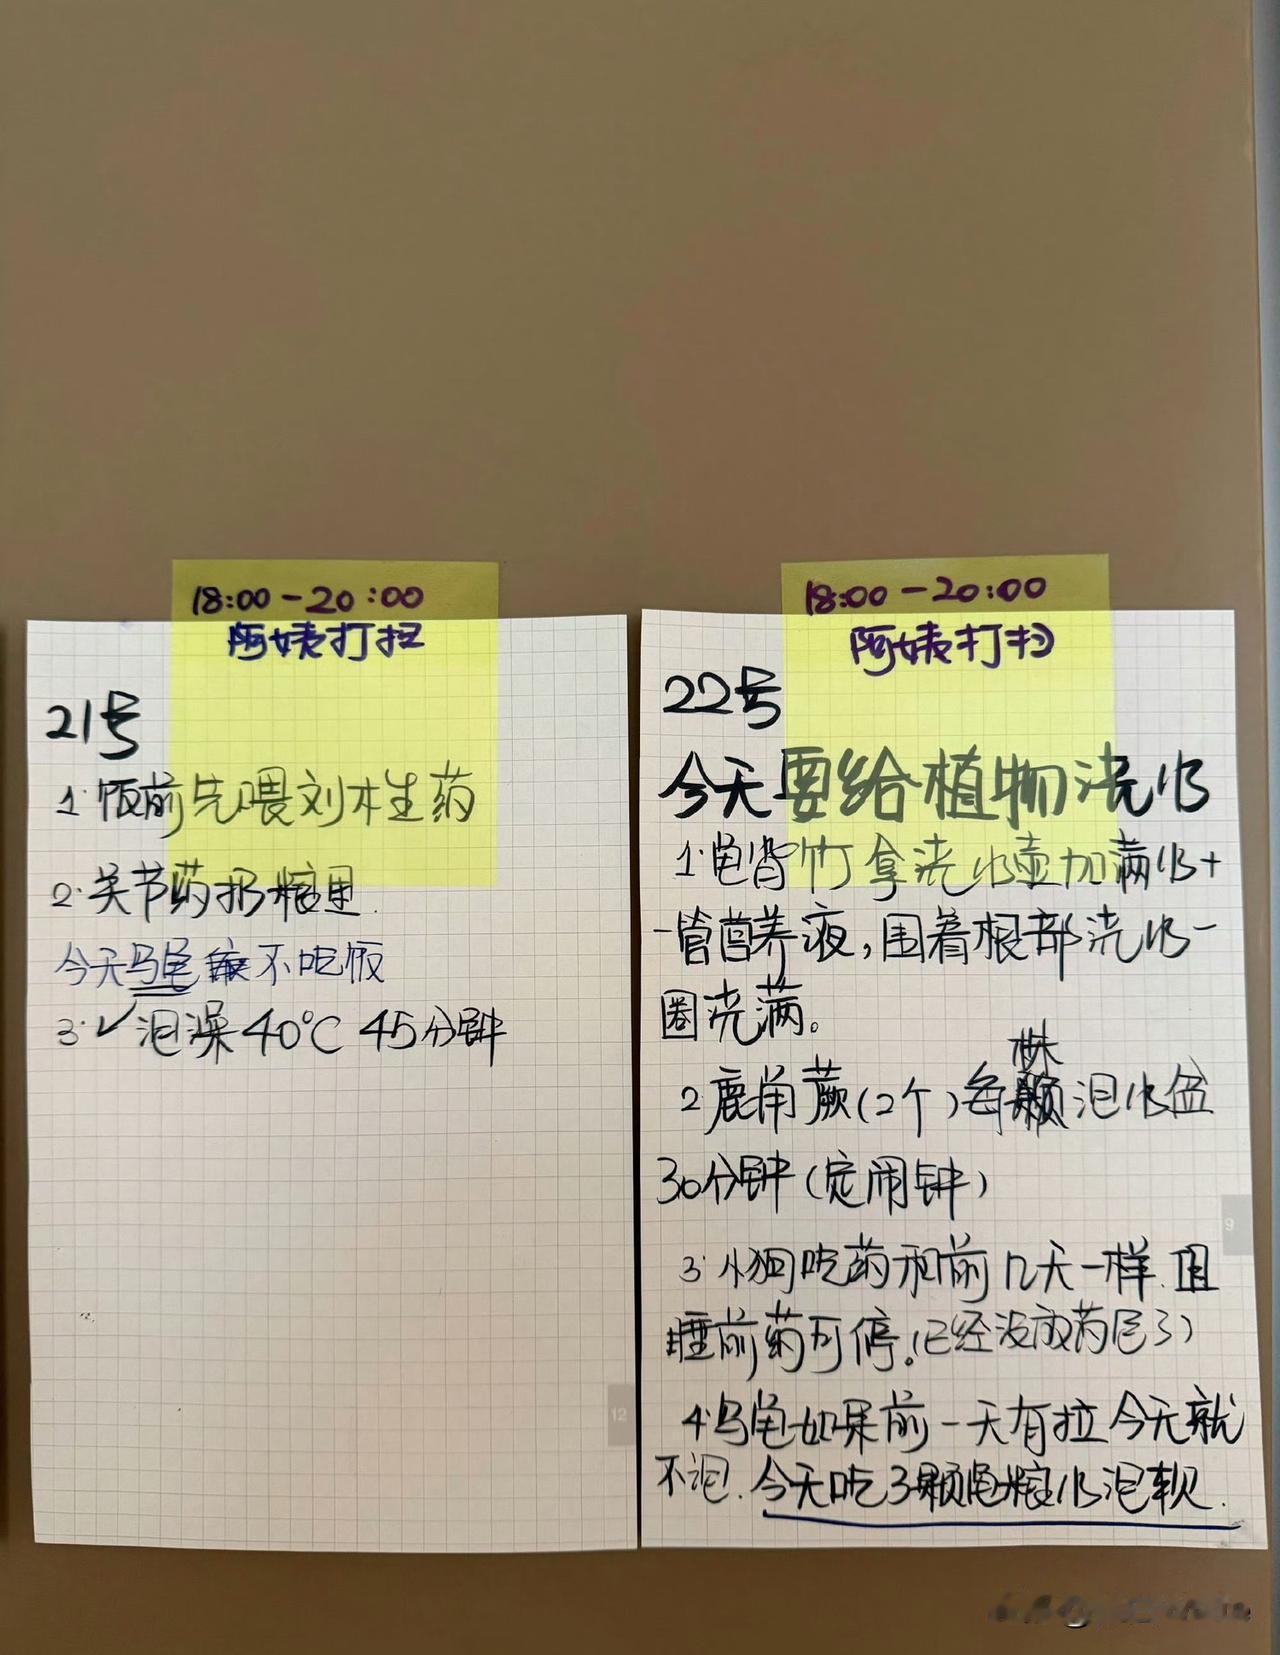 18:00-20:00
阿姨打扫
21号
1.饭前先喂刘桂生药
2.关节药扔粮里.
今天乌龟不吃饭
3.✓泡澡40℃ 45分钟
12
18:00-20:00
阿姨打扫
22号
今天要给植物浇水
1.龟背竹拿浇水壶加满水+
一管营养液,围着根部浇水一
圈浇满。
2.鹿角蕨(2个)每株泡水盆
30分钟(定闹钟)
9
3.小狗吃药和前几天一样.且
睡前药可停。(已经没放药尾了)
4.乌龟如果前一天有拉今天就
不泡.今天吃3颗龟粮水泡软.